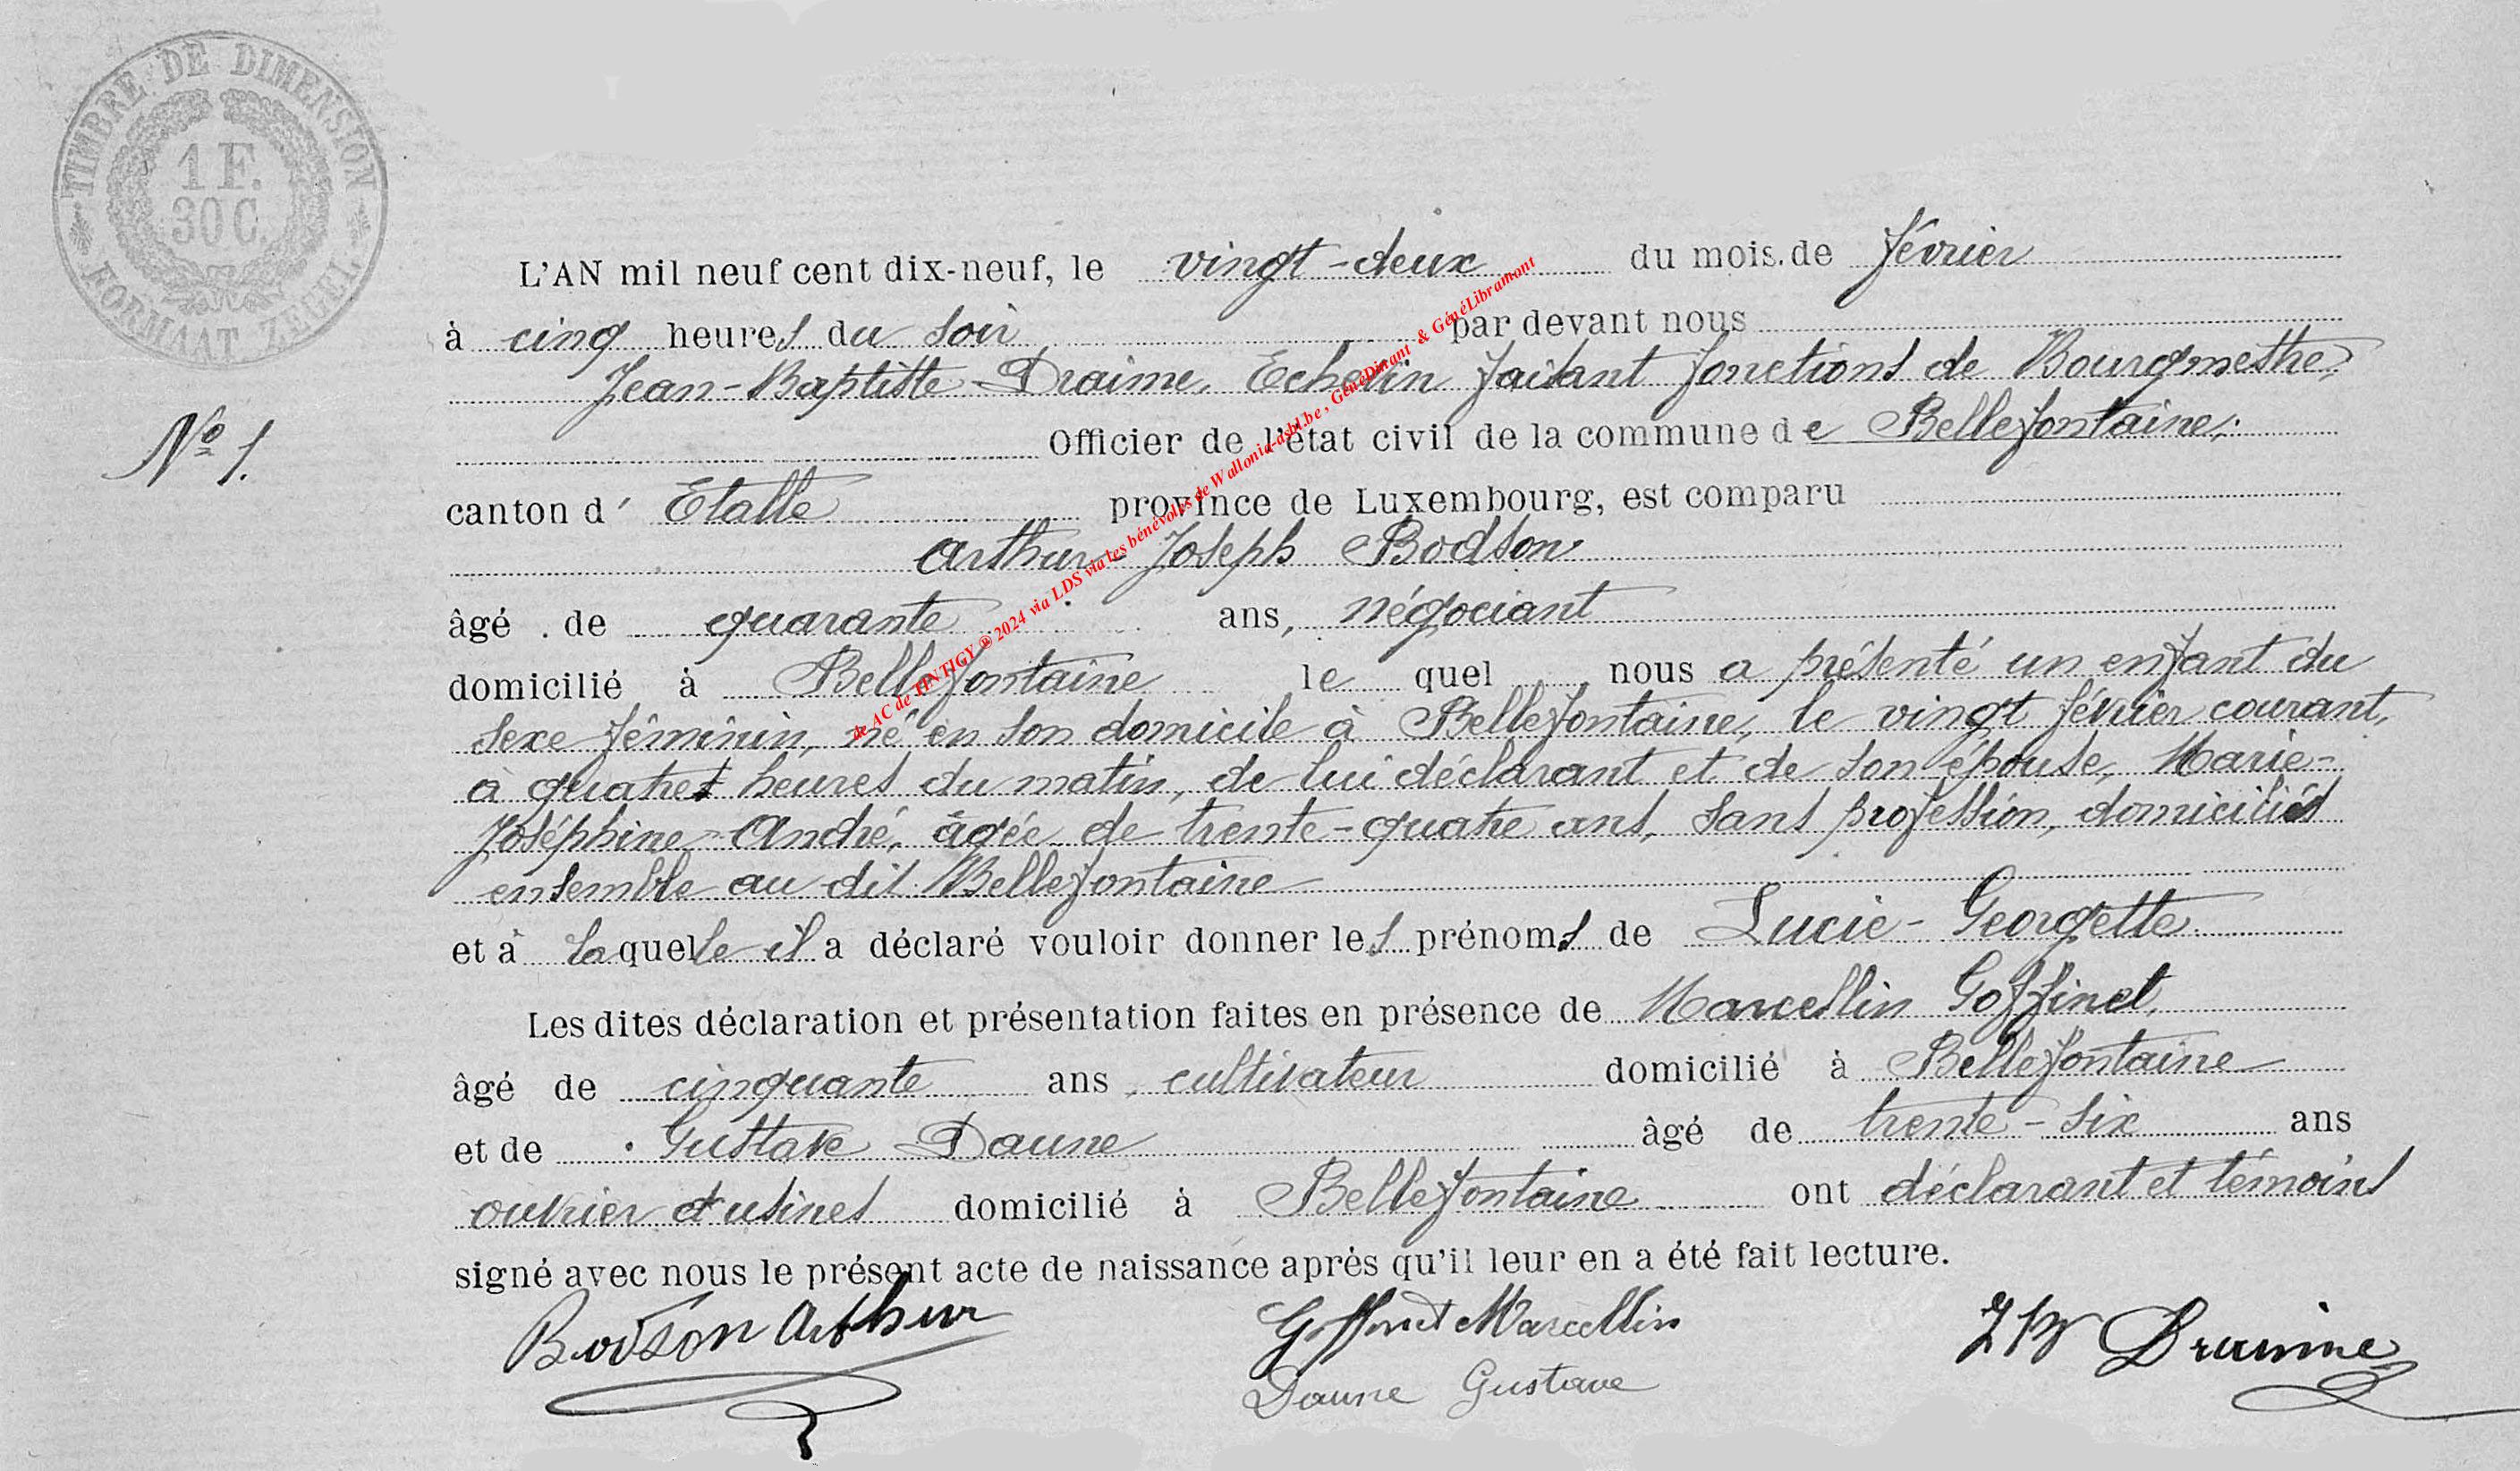 TIMBRE DE DIMENSION
1 F.
30 C.
FORMAAT ZEGEL
L'AN mil neuf cent dix-neuf, le vingt-deux du mois de février
à cinq heures du soir par devant nous
Jean-Baptiste Draime, Echevin faisant fonctions de Bourgmestre,
N° 1.
Officier de l'état civil de la commune de Bellefontaine,
canton d' Etalle province de Luxembourg, est comparu
Arthur-Joseph Bodson
âgé de quarante ans, négociant
domicilié à Bellefontaine le quel nous a présenté un enfant du
sexe féminin, né en son domicile à Bellefontaine, le vingt février courant,
à quatre heures du matin, de lui déclarant et de son épouse, Marie-
Joséphine André, âgée de trente-quatre ans, sans profession, domiciliés
ensemble au dit Bellefontaine
et à laquelle il a déclaré vouloir donner les prénoms de Lucie-Georgette
Les dites déclaration et présentation faites en présence de Marcellin Goffinet,
âgé de cinquante ans, cultivateur domicilié à Bellefontaine
et de Gustave Daune âgé de trente-six ans
ouvrier d'usines domicilié à Bellefontaine ont déclarant et témoins
signé avec nous le présent acte de naissance après qu'il leur en a été fait lecture.
Bodson Arthur Goffinet Marcellin JB Draime
Daune Gustave
de AC de TINTIGY ® 2024 via LDS via les bénévoles de Wallonia-asbl.be , GénéDinant & GénéLibramont